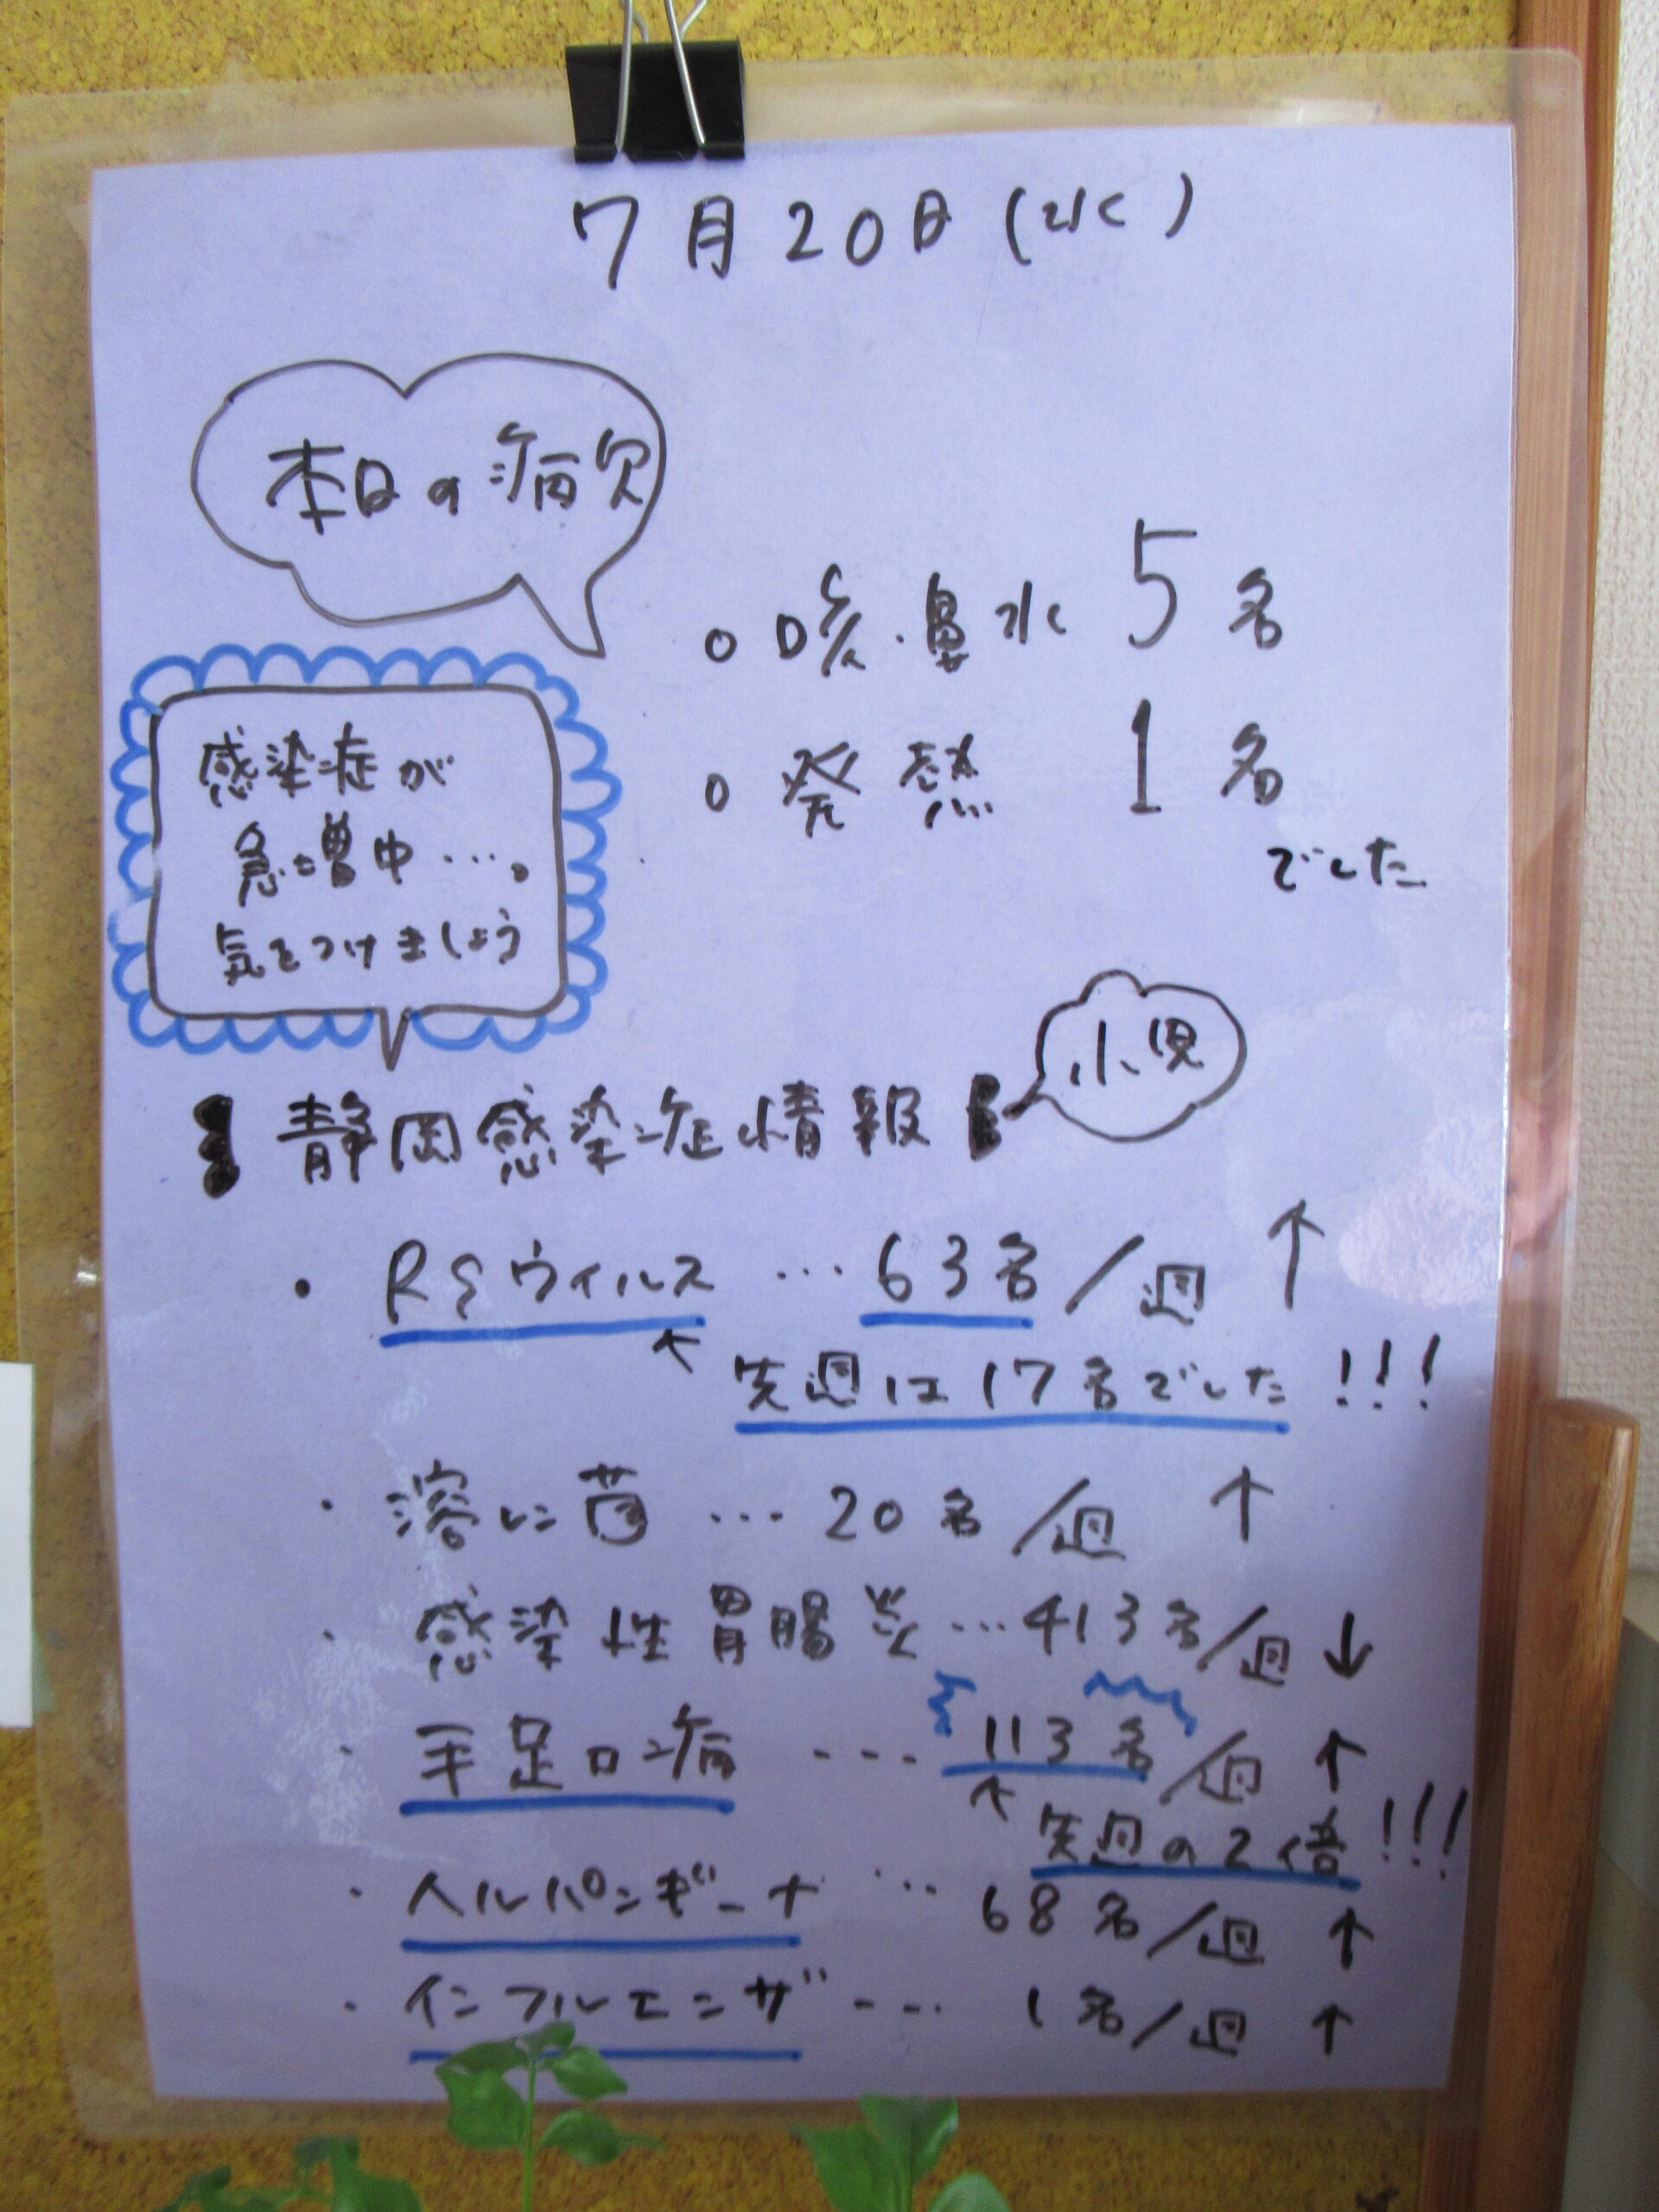 7月20日(水)
本日の病欠
○咳・鼻水 5名
○発熱 1名
でした
感染症が
急増中…。
気をつけましょう
【静岡感染症情報】
小児
・RSウィルス…63名/週↑
↖先週は17名でした!!!
・溶レン菌…20名/週↑
・感染性胃腸炎…413名/週↓
・手足口病…113名/週↑
↖先週の2倍!!!
・ヘルパンギーナ…68名/週↑
・インフルエンザ…1名/週↑